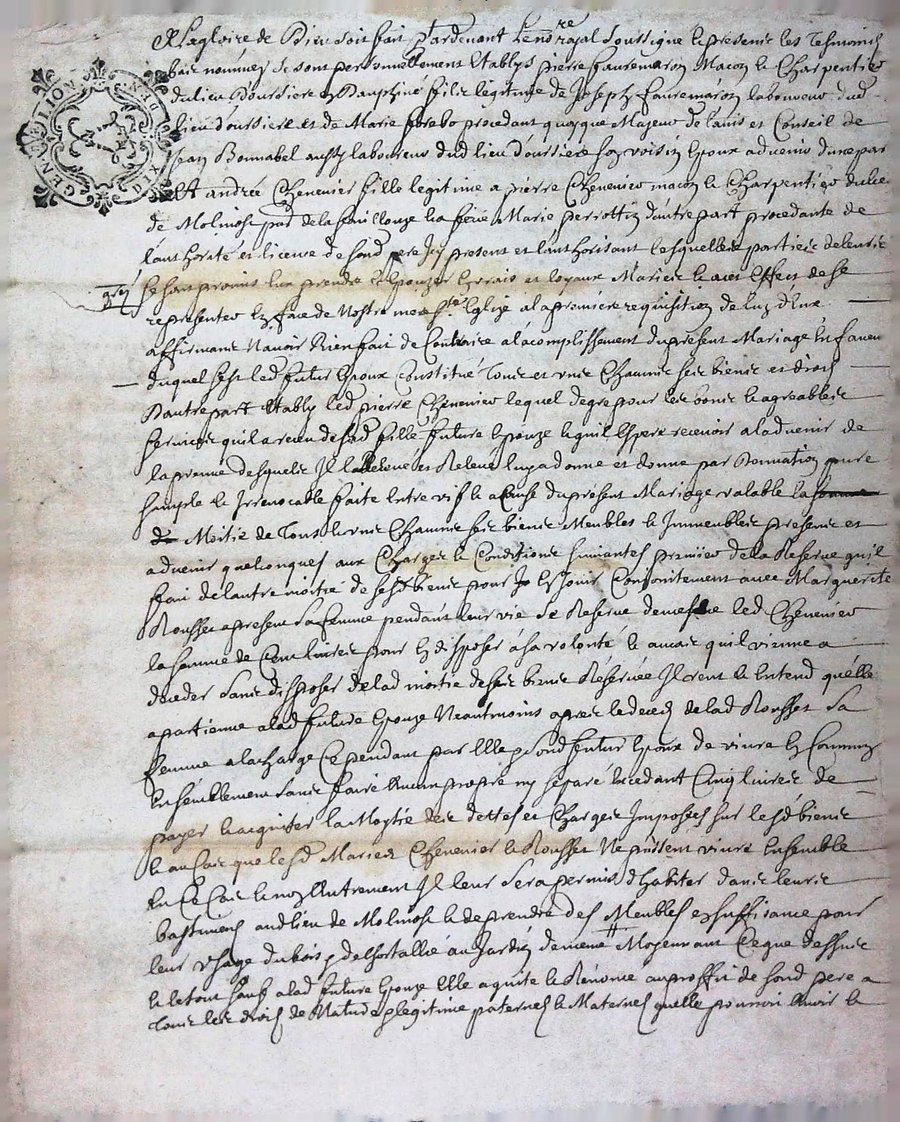 A la gloire de Dieu soit fait Pardevant le no.re royal soussigne le presenes les Tesmoins
bas nommes se sont personnellement Etablys pierre fauremaron Macon le Charpentier
du lieu Doursiere en Dauphiné fils legitime de Joseph fauremaron laboureur dud
lieu d'oursiere et de Marie procedant quoyque Majeur de lauis et Conseil de
Jean Bonnabel aussy laboureur dud lieu d'oursiere son voisin Epoux aduenir dune par
Et andrée Cheneuier fille legitime a pierre Cheneuier macon le Charpentier du lieu
de Molmose de la la feüe Marie perrottin dautre part procedante de
lauthorité et licence de son d pere Icy present et lauthorisant lesquelles parties de leurs
grez
se sont promis prendre Epouzer En vrais et loyaux Maries le aux Effect de se
representer En face de Nostre mere S.te Eglise a la premiere requisition de Lun d'Eux
affirmant Nauoir Rien fait de Contraire a lacomplissement du present Mariage En faueur
duquel sest led futur Epoux Constitué Tous et vns Chacuns ses biens et droits
Dautre part Etably led pierre Cheneuier lequel de gre pour les bons le agreables
seruices quil a receu de sad fille future Epouze le quil Espere receuoir a laduenir de
la preuue desquels Il la Releue luy a donne et donne par Donnation pure
simple le Irreuocable faite Entre vif le a Cause du present Mariage valable la somme
de Moitie de Tous le vns Chacuns ses biens Meubles le Immeubles presens et
aduenir quelconques aux Charges le Conditions suiuantes premier de la Reserue quil
fait de lautre moitié de sesd biens pour En Jouir Conjointement auec Marguerite
Rousset a present sa femme pendant leur vie Se Reserue de mesme led Cheneuier
la somme de Cent liures pour En disposer a sa volonté le au cas quil vienne a
deceder sans disposer de lad moitie de ses biens Réseruée Il veut le Entend quelle
apartienne a lad future Epouze Neantmoins apres le deces de lad Rousset Sa
femme a la charge Cependant par Elle le sond futur Epoux de viure En Commun
Ensemblement sans faire Aucun propre ny separé Excedant Cinq liures de
payer le acquiter la Moytié des dettes et Charges Imposées sur lesd biens
le au Cas que lesd Maries Cheneuier le Rousset Ne puissent viure Ensemble
En Ce Cas le non Autrement Il leur sera permis d'habiter dans leurs
bastiments aud lieu de Molmose le de prendre des Meubles En suffisance pour
leur vsage du bois le de lhortallie au Jardin de meme Moyennant Ce que dessus
le le tout sauf a lad future Epouze Elle a quite le Renonce au proffit de sond pere a
tous les droits de Nature legitime paternel le Maternel quelle pourroit Auoir le
GENER DIX DEN